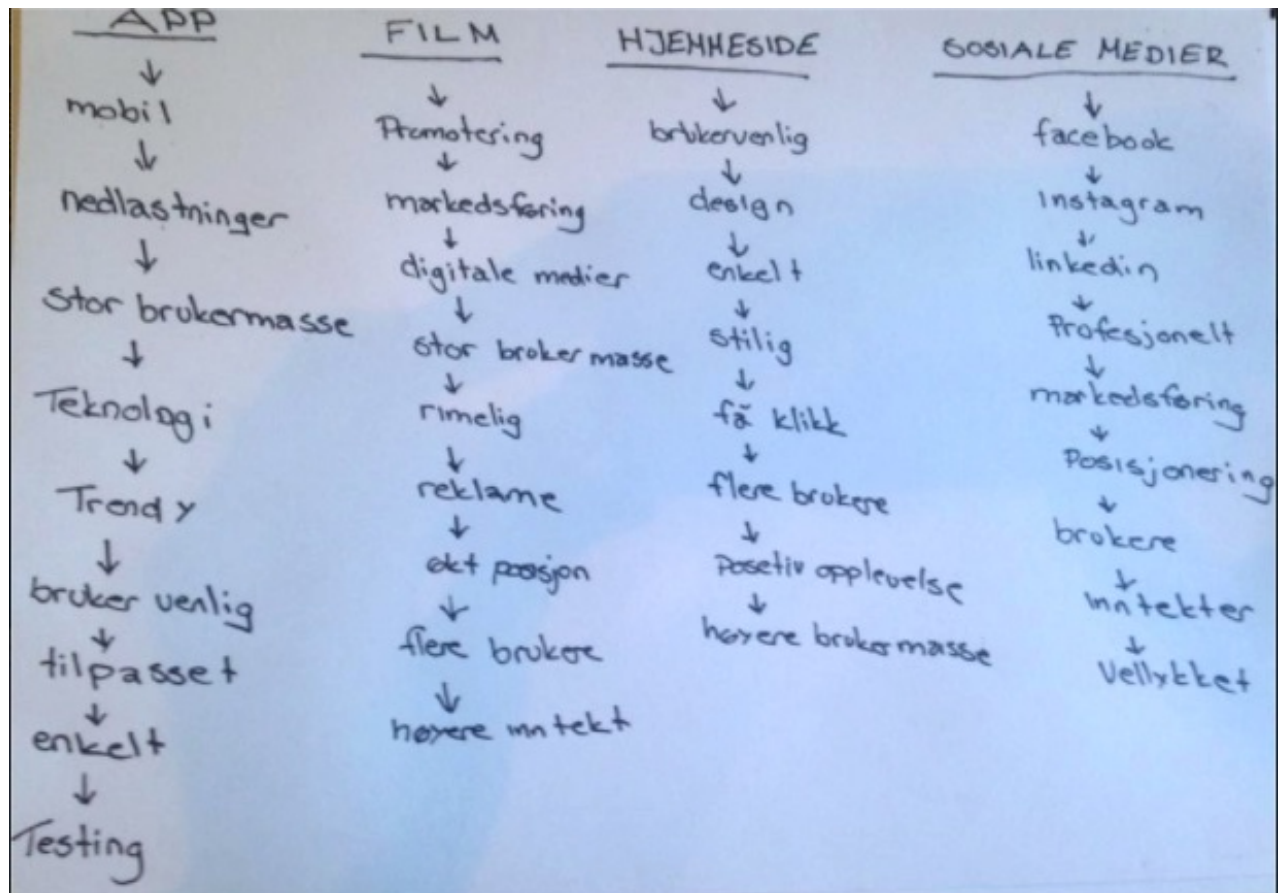 APP
↓
mobil
↓
nedlastninger
↓
stor brukermasse
↓
Teknologi
↓
Trendy
↓
bruker venlig
↓
tilpasset
↓
enkelt
↓
Testing
FILM
↓
Promotering
↓
markedsføring
↓
digitale medier
↓
stor bruker masse
↓
rimelig
↓
reklame
↓
økt posisjon
↓
flere brukere
↓
høyere inntekt
HJEMMESIDE
↓
brukervenlig
↓
design
↓
enkelt
↓
stilig
↓
få klikk
↓
flere brukere
↓
Posetiv opplevelse
↓
høyere brukermasse
SOSIALE MEDIER
↓
facebook
↓
Instagram
↓
linkedin
↓
Profesjonelt
↓
markedsføring
↓
Posisjonering
↓
brukere
↓
inntekter
↓
Vellykket